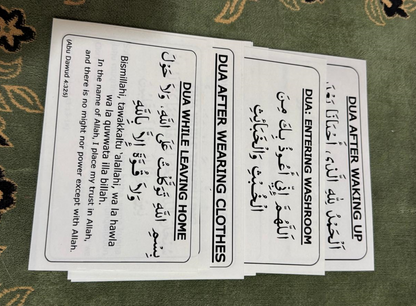 DUA WHILE LEAVING HOME
بِسْمِ اللهِ تَوَكَّلْتُ عَلَى اللهِ، وَلَا حَوْلَ
وَلَا قُوَّةَ إِلَّا بِاللهِ
Bismillahi, tawakkaltu 'alallahi, wa la hawla
wa la quwwata illa billah.
In the name of Allah, I place my trust in Allah,
and there is no might nor power except with Allah.
(Abu Dawud 4:325)
DUA AFTER WEARING CLOTHES
DUA: ENTERING WASHROOM
اَللّٰهُمَّ إِنِّي أَعُوذُ بِكَ مِنَ
الْخُبُثِ وَالْخَبَائِثِ
DUA AFTER WAKING UP
اَلْحَمْدُ لِلّٰهِ الَّذِي أَحْيَانَا بَعْدَ